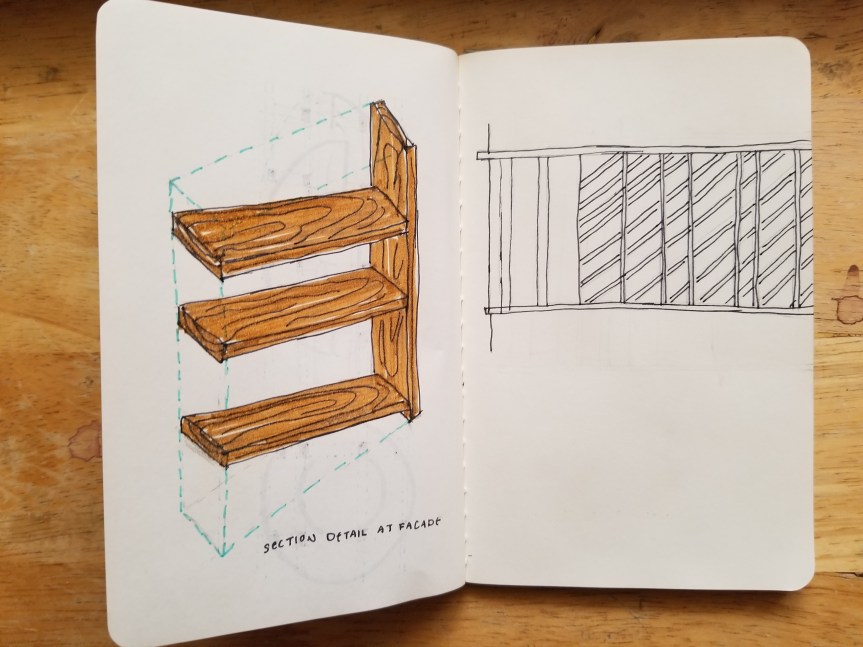 SECTION DETAIL AT FACADE